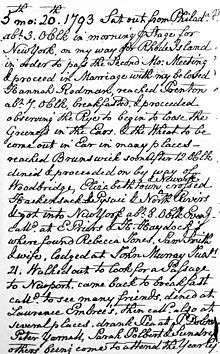 5 mo: 20th. 1793 Sat out from Philada.
abt. 3.0Clk in morning pr Stage for
New York, on my way for Rhode Island
in order to pass the Second Mo: Meeting
& proceed in Marriage with my beloved
Hannah Rodman, reached Trenton
abt. 7.0Clk, breakfasted, & proceeded
observing the Rye to begin to lose the
Greeness in the Ears. & the Wheat to be
come out in Ear in many places —
reached Brunswick soon after 12.0Clk
dined & proceeded on by way of
Woodbridge, Elizabeth town, & Newark
crossed Hackensack & North Rivers
& got into New York abt. 8.0Clk
call'd at E. Priors & Haydock's
where found Rebecca Jones, Saml Smith
& wife, lodged at John Murray Junrs.
21. Walked out to look for a Passage
to Newport, came back to breakfast
call'd to see many friends, dined at
Lawrence Embree's, then call'd also at
several places, drank Tea at
Peter Yarnall, Sarah
others being come to attend the Yearly